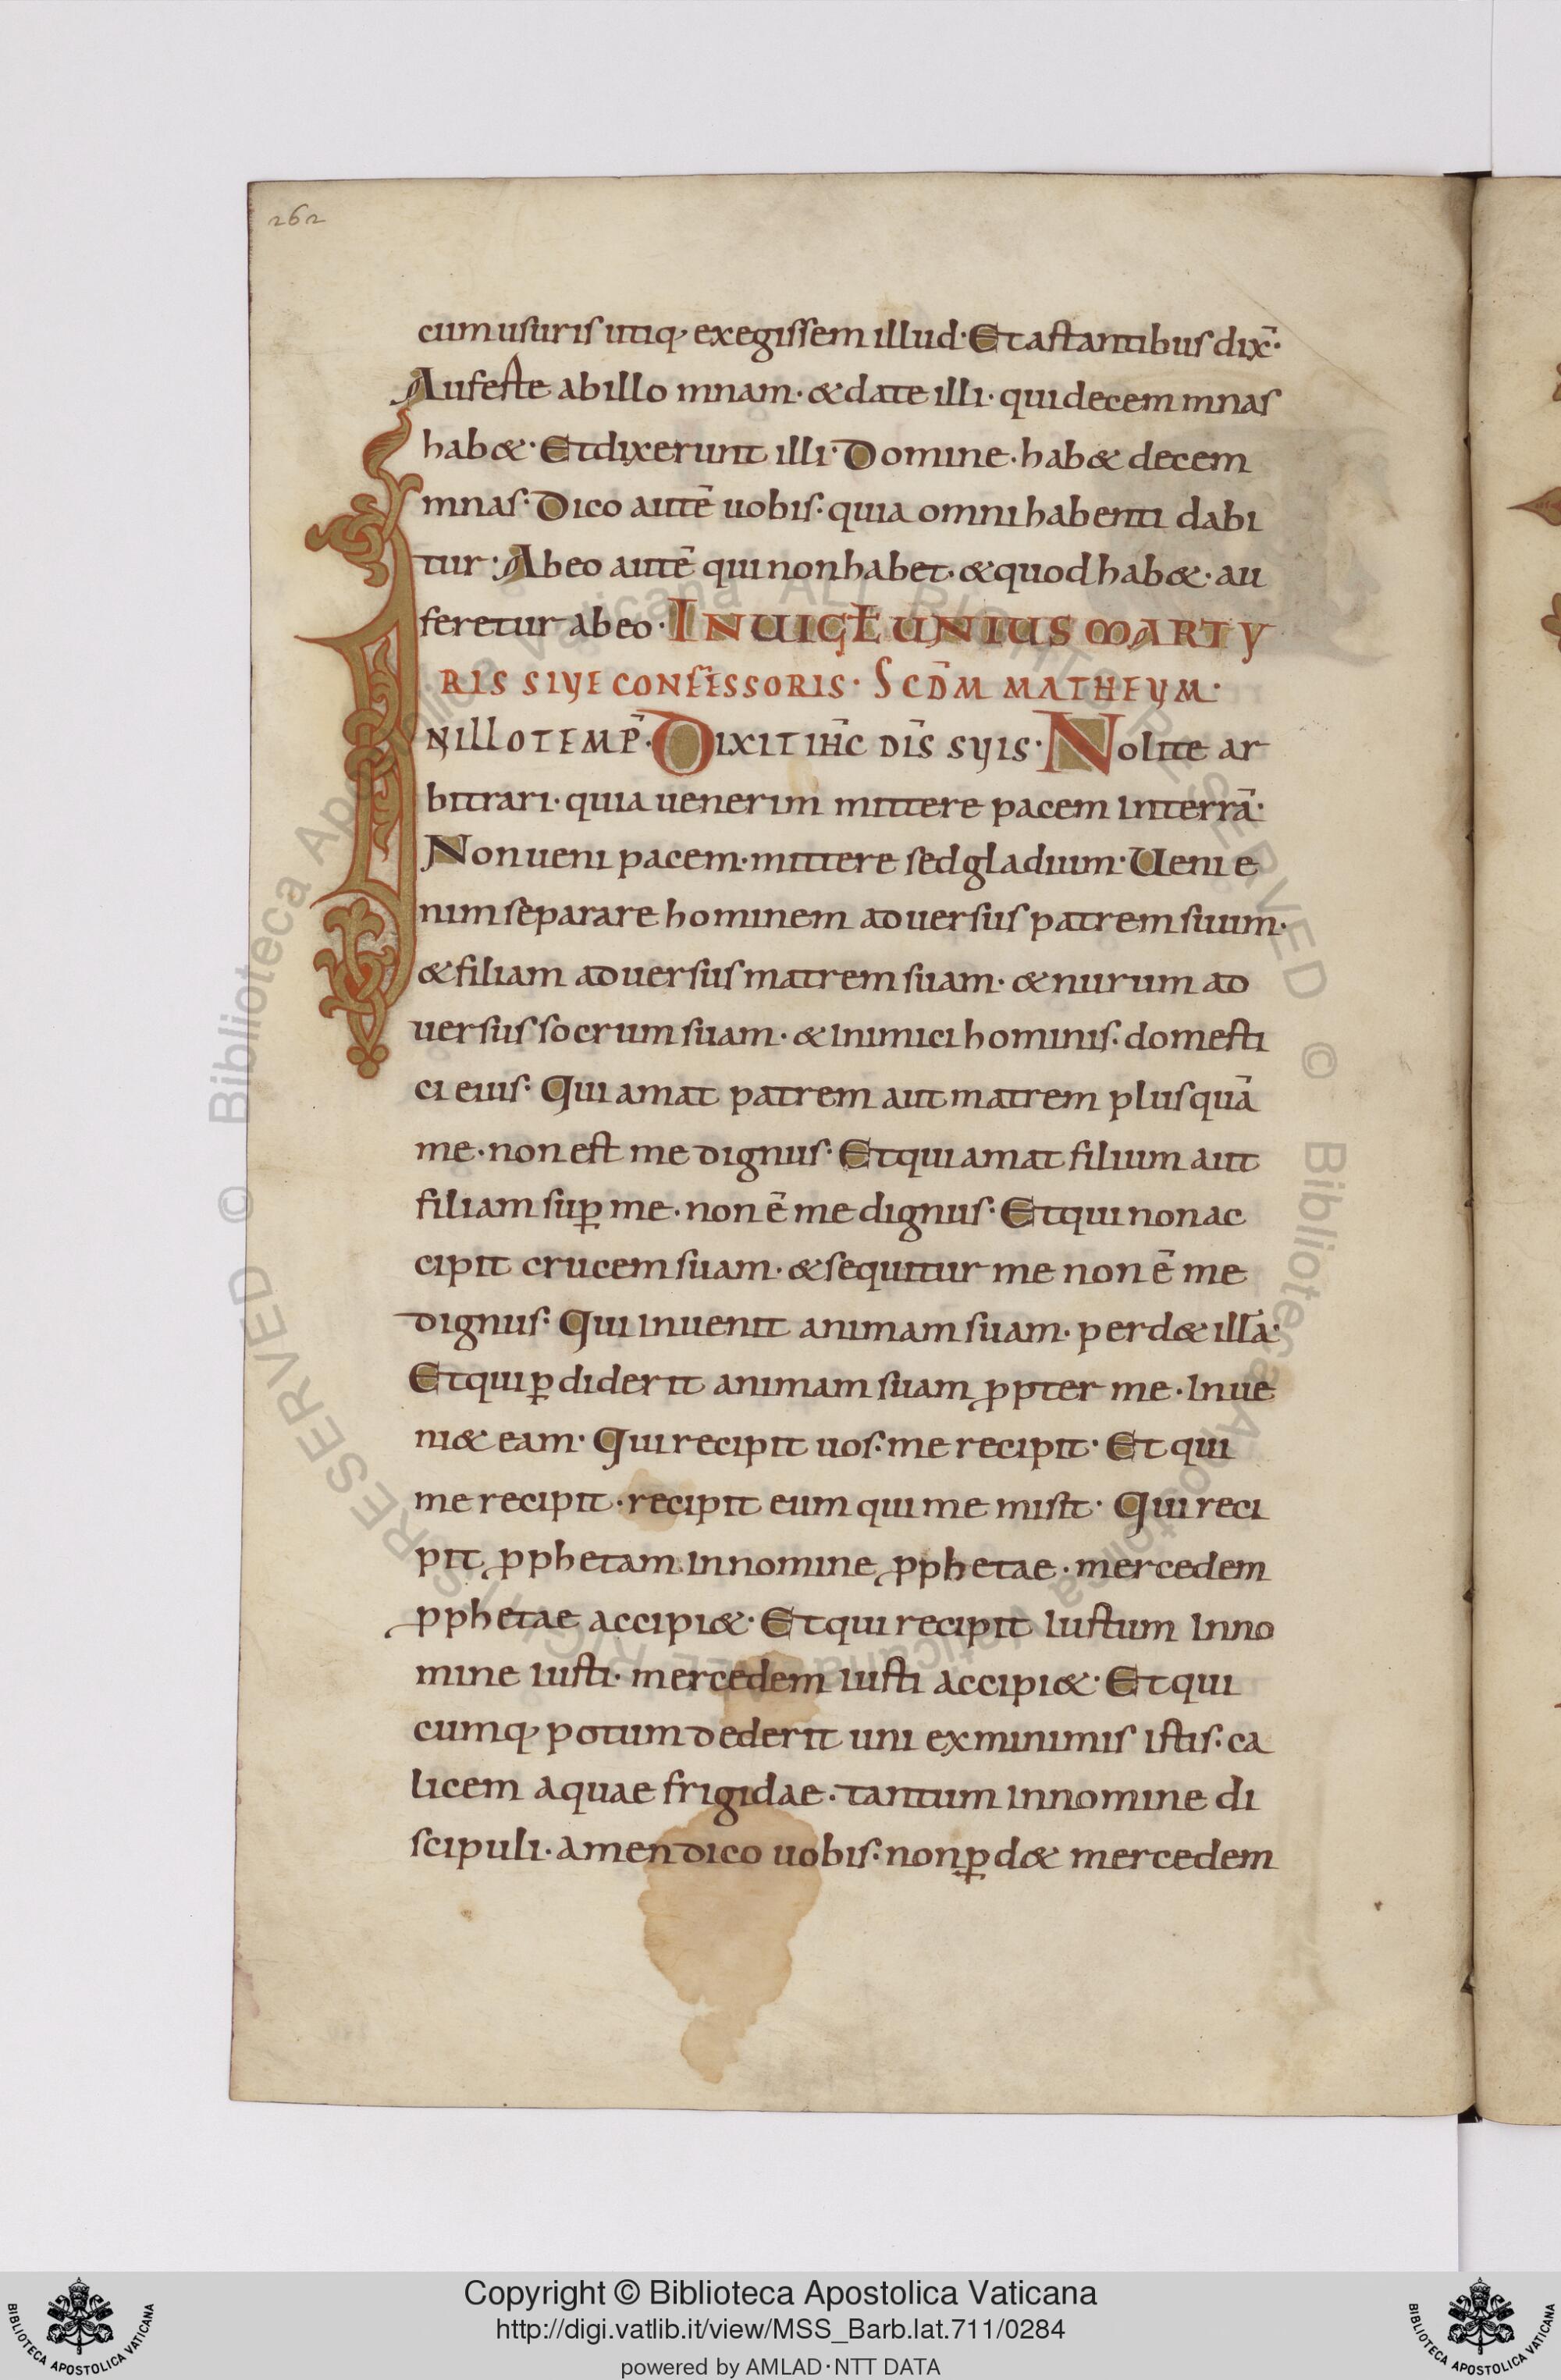 262
cum usuris utiq; exegissem illud· Et astantibus dix̄·
Auferte ab illo mnam· & date illi· qui decem mnas
hab&· Et dixerunt illi· Domine· hab& decem
mnas· Dico autē uobis· quia omni habenti dabi
tur· Ab eo autē qui non habet· & quod hab&· au
feretur ab eo· IN UIGŁ UNIUS MARTY
RIS SIVE CONFESSORIS· SCD̄M MATHEVM·
IN ILLO TEMP̄· DIXIT IH̄C DIS̄ SVIS· Nolite ar
bitrari· quia uenerim mittere pacem in terrā·
Non ueni pacem· mittere sed gladium· Ueni e
nim separare hominem aduersus patrem suum·
& filiam aduersus matrem suam· & nurum ad
uersus socrum suam· & inimici hominis· domesti
ci eius· Qui amat patrem aut matrem plus quā
me· non est me dignus· Et qui amat filium aut
filiam sup̱ me· non ē me dignus· Et qui non ac
cipit crucem suam· & sequitur me non ē me
dignus· Qui inuenit animam suam· perd& illā·
Et qui p̱diderit animam suam ꝓpter me· inue
ni& eam· Qui recipit uos· me recipit· Et qui
me recipit· recipit eum qui me misit· Qui reci
pit ꝓphetam in nomine ꝓphetae· mercedem
ꝓphetae accipi&· Et qui recipit iustum in no
mine iusti· mercedem iusti accipi&· Et qui
cumq; potum dederit uni ex minimis istis· ca
licem aquae frigidae· tantum in nomine di
scipuli· amen dico uobis· non p̱d& mercedem
Copyright © Biblioteca Apostolica Vaticana
http://digi.vatlib.it/view/MSS_Barb.lat.711/0284
powered by AMLAD·NTT DATA
BIBLIOTECA APOSTOLICA VATICANA
BIBLIOTECA APOSTOLICA VATICANA
© Biblioteca Apostolica Vaticana ALL RIGHTS RESERVED © Biblioteca Apostolica Vaticana ALL RIGHTS RESERVED